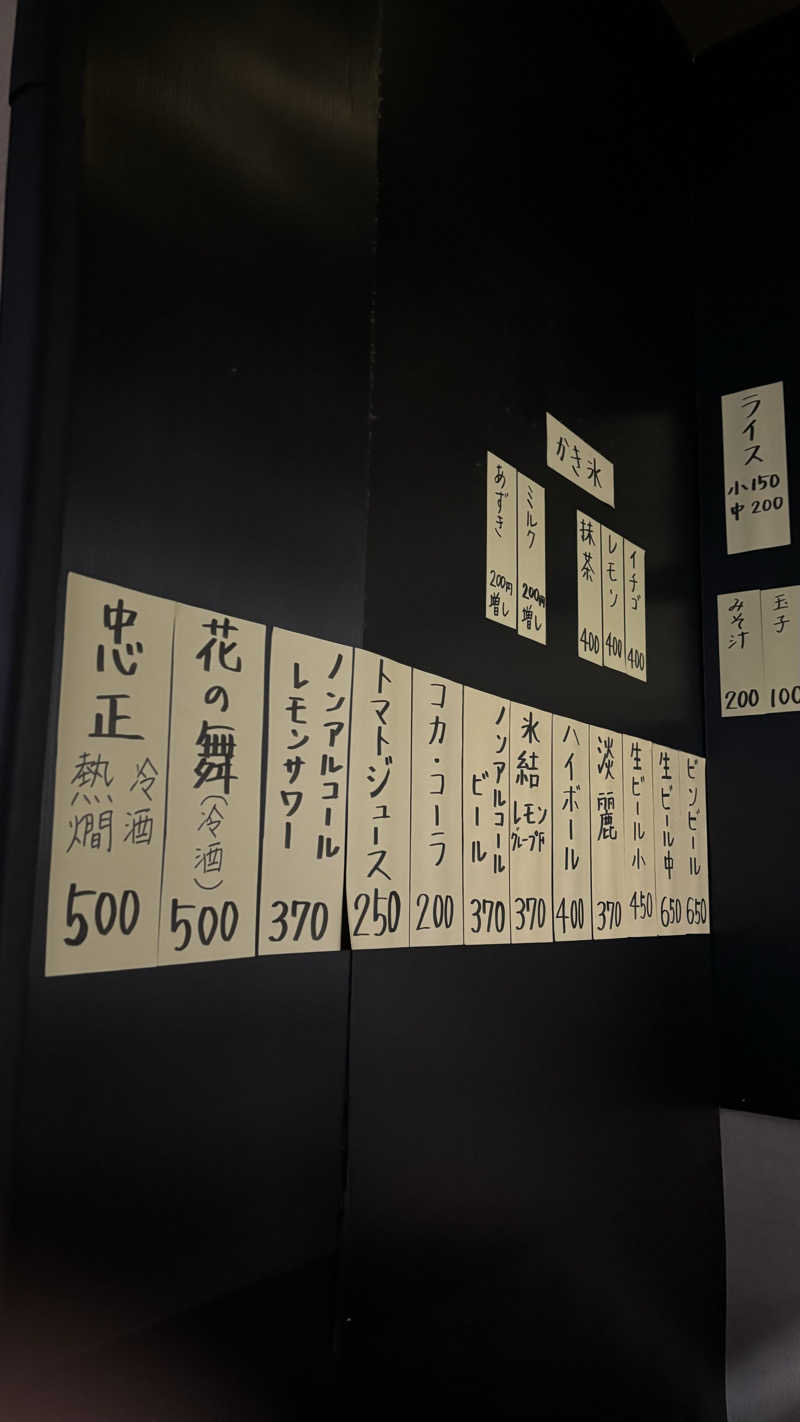 ライス
小150
中200
玉子
100
みそ汁
200
かき氷
イチゴ
400
レモン
400
抹茶
400
ミルク
200円
増し
あずき
200円
増し
ビンビール
650
生ビール中
650
生ビール小
450
淡麗
370
ハイボール
400
氷結
レモン
グレープF
370
ノンアルコール
ビール
370
コカ・コーラ
200
トマトジュース
250
ノンアルコール
レモンサワー
370
花の舞
(冷酒)
500
忠正
冷酒
熱燗
500